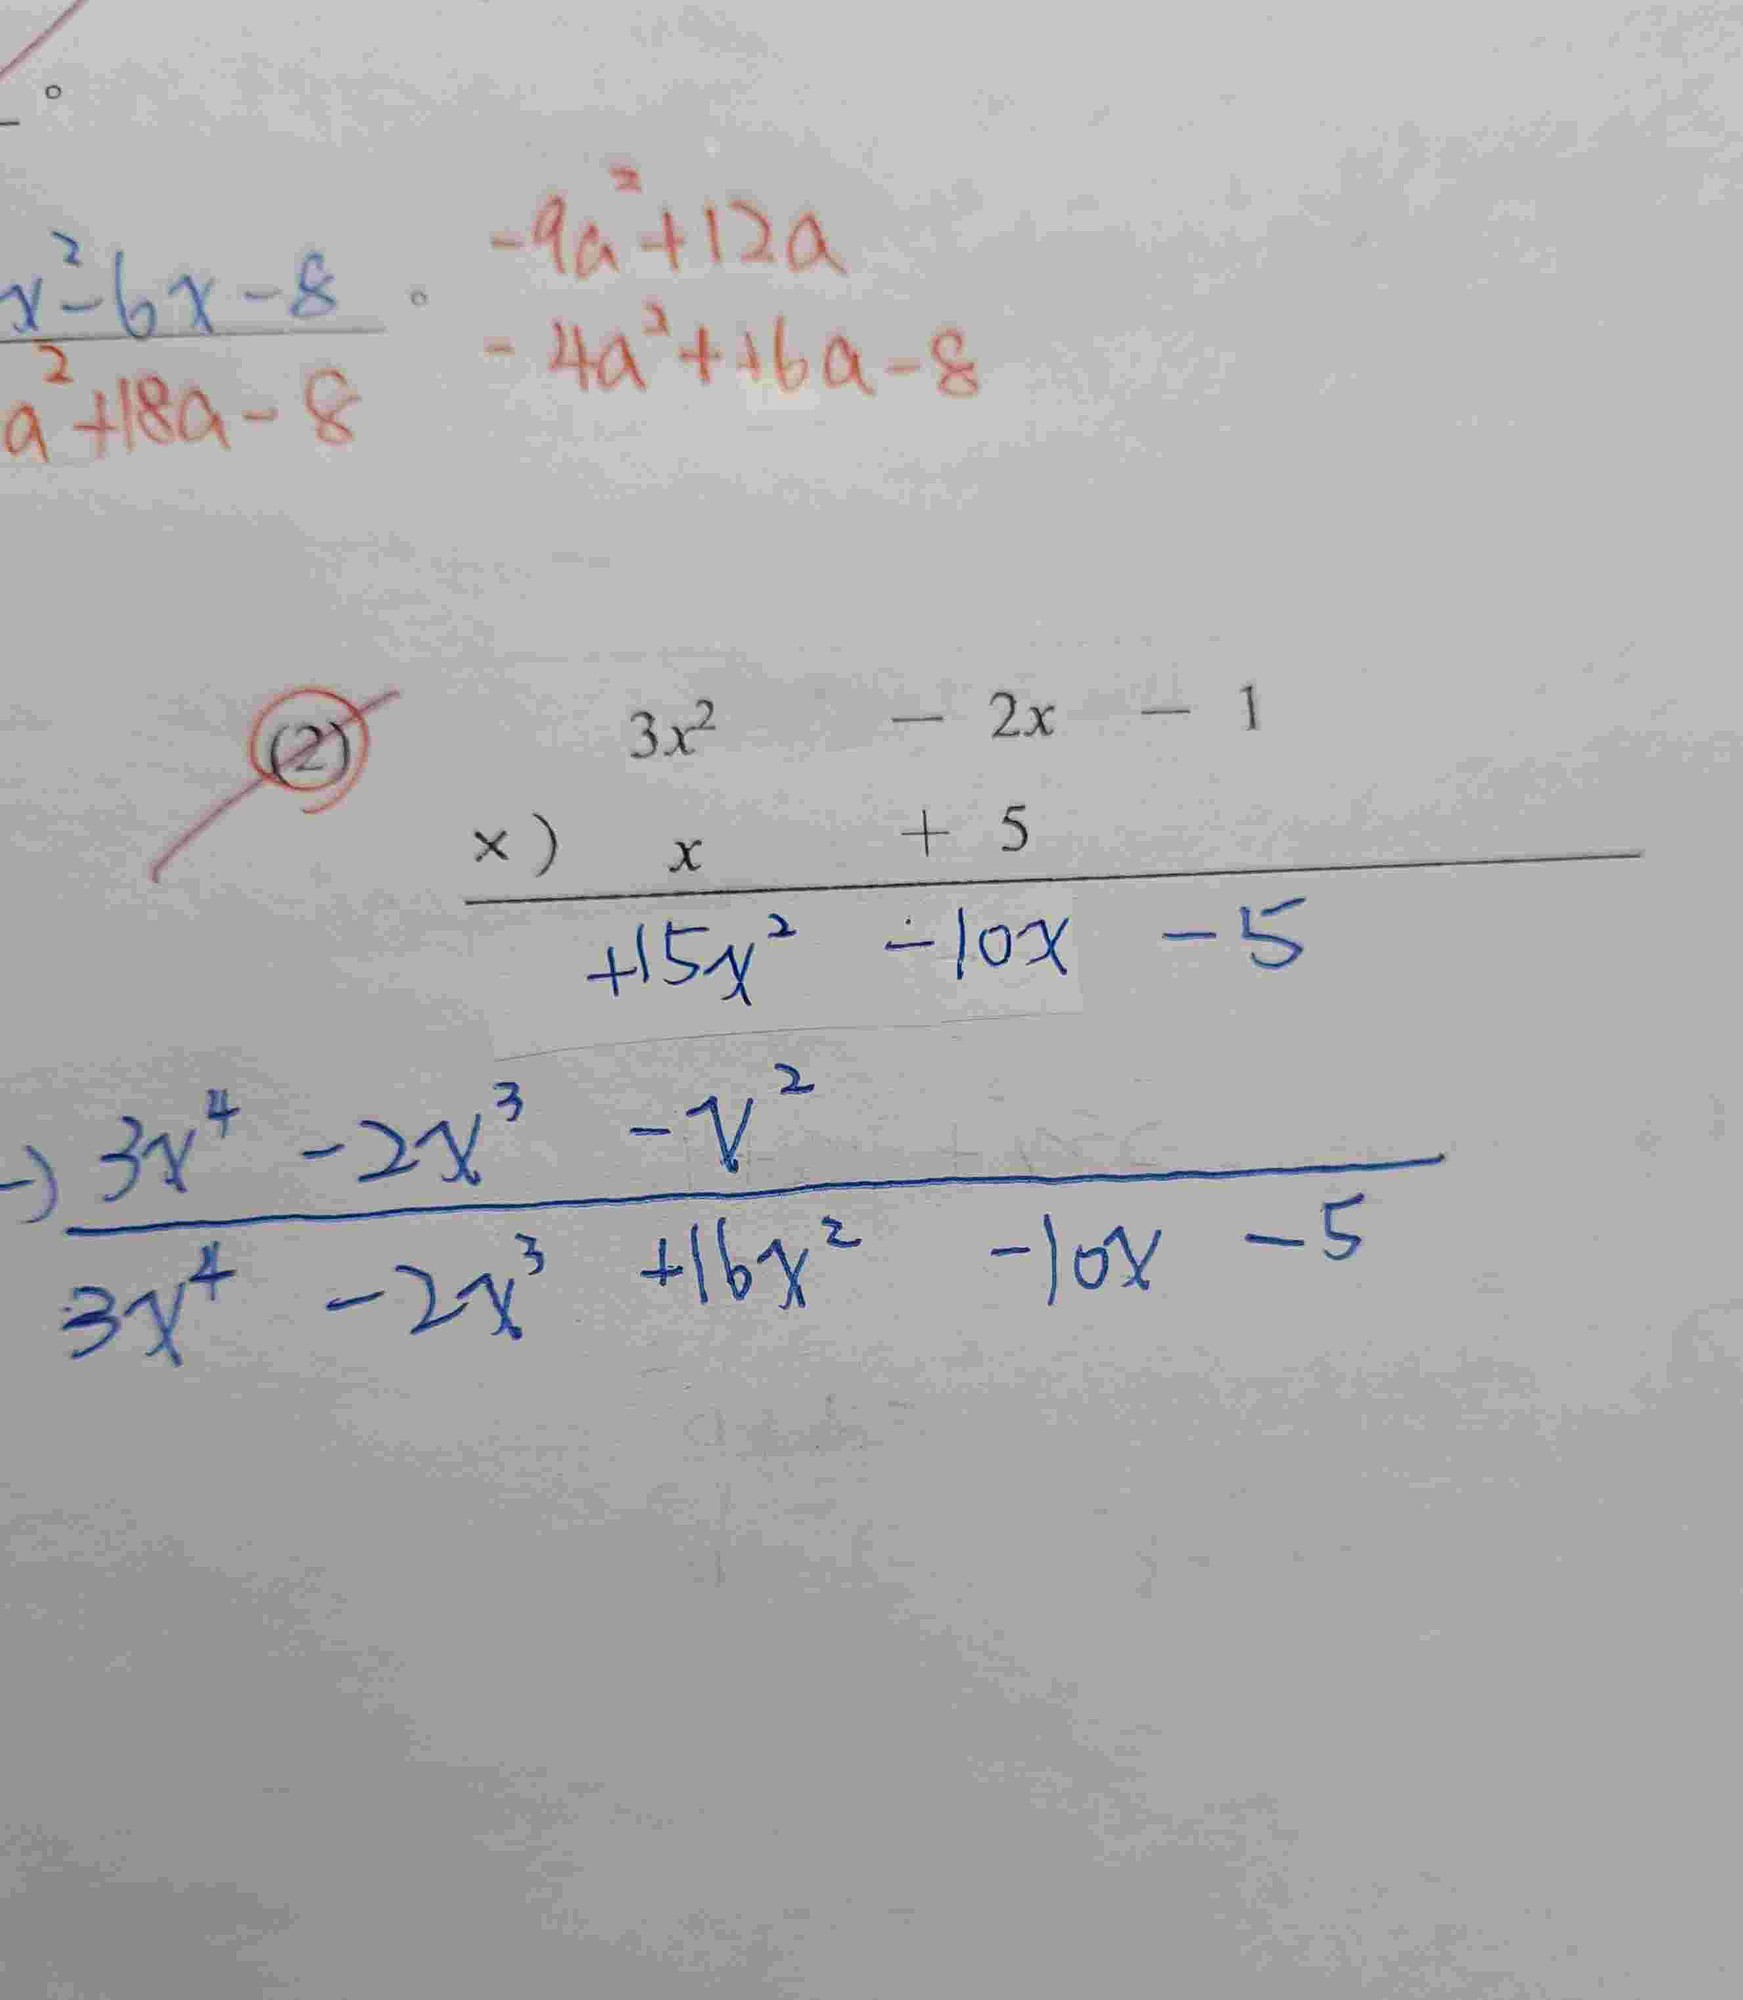 。
x²-6x-8 。
-9a²+12a
a²+18a-8
-4a²+16a-8
(2) 3x² - 2x - 1
×) x + 5
+15x² -10x -5
-) 3x⁴ -2x³ -x²
3x⁴ -2x³ +16x² -10x -5